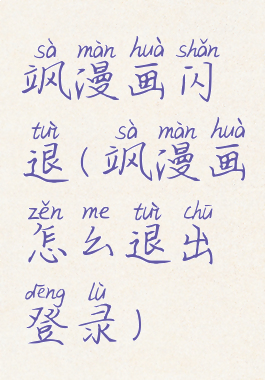 sà màn huà shǎn
飒漫画闪
tuì sà màn huà
退(飒漫画
zěn me tuì chū
怎么退出
dēng lù
登录)